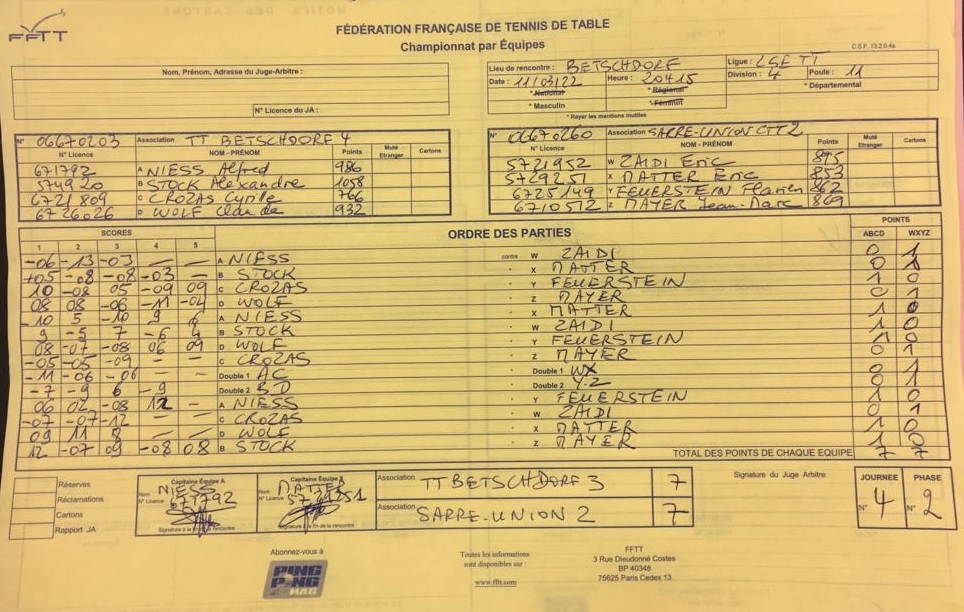 FFTT
FÉDÉRATION FRANÇAISE DE TENNIS DE TABLE
Championnat par Équipes
C.S.F. 13.2.0.4a
Nom, Prénom, Adresse du Juge-Arbitre :
N° Licence du JA :
Lieu de rencontre : BETSCHDORF Ligue : LGE TT
Date : 11/03/22 Heure : 20H15 Division : 4 Poule : 11
* National * Régional * Départemental
* Masculin * Féminin
* Rayer les mentions inutiles
N° 06670203 Association TT BETSCHDORF 4
N° Licence NOM - PRÉNOM Points Muté Etranger Cartons
671792 A NIESS Alfred 986
574920 B STOCK Alexandre 1058
6721809 C CROZAS Cyrille 766
6726026 D WOLF Claude 932
N° 06670260 Association SARRE-UNION CTT 2
N° Licence NOM - PRÉNOM Points Muté Etranger Cartons
5721952 W ZAIDI Eric 895
5729251 X MATTER Eric 853
6725149 Y FEUERSTEIN Florien 862
6710512 Z MAYER Jean-Marc 869
SCORES ORDRE DES PARTIES POINTS
1 2 3 4 5 ABCD WXYZ
-06 -13 -03 — — A NIESS contre W ZAIDI 0 1
+05 -08 -08 -03 — B STOCK X MATTER 0 1
10 -08 05 -09 09 C CROZAS Y FEUERSTEIN 1 0
08 08 -06 -11 -04 D WOLF Z MAYER 0 1
-10 5 -10 9 6 A NIESS X MATTER 1 0
9 -5 7 -6 4 B STOCK W ZAIDI 1 0
08 -07 -08 06 09 D WOLF Y FEUERSTEIN 1 0
-05 -05 -09 - - C CROZAS Z MAYER 0 1
-11 -06 -06 - - Double 1 AC Double 1 WX 0 1
-7 -9 6 -9 Double 2 BD Double 2 Y-Z 0 1
06 02 -08 12 - A NIESS Y FEUERSTEIN 1 0
-07 -07 -12 — — C CROZAS W ZAIDI 0 1
09 11 8 — — D WOLF X MATTER 1 0
12 -07 09 -08 08 B STOCK Z MAYER 1 0
TOTAL DES POINTS DE CHAQUE EQUIPE 7 7
Réserves
Réclamations
Cartons
Rapport JA
Capitaine Équipe A
Nom NIESS
N° Licence 671792
Signature à la fin de la rencontre
Nom MATTER
N° Licence
Signature à la fin de la rencontre
Association TT BETSCHDORF 3 7
Association SARRE-UNION 2 7
Signature du Juge Arbitre
JOURNEE PHASE
N° 4 N° 2
Abonnez-vous à
PING PONG MAG
Toutes les informations
sont disponibles sur :
www.fftt.com
FFTT
3 Rue Dieudonné Costes
BP 40348
75625 Paris Cedex 13